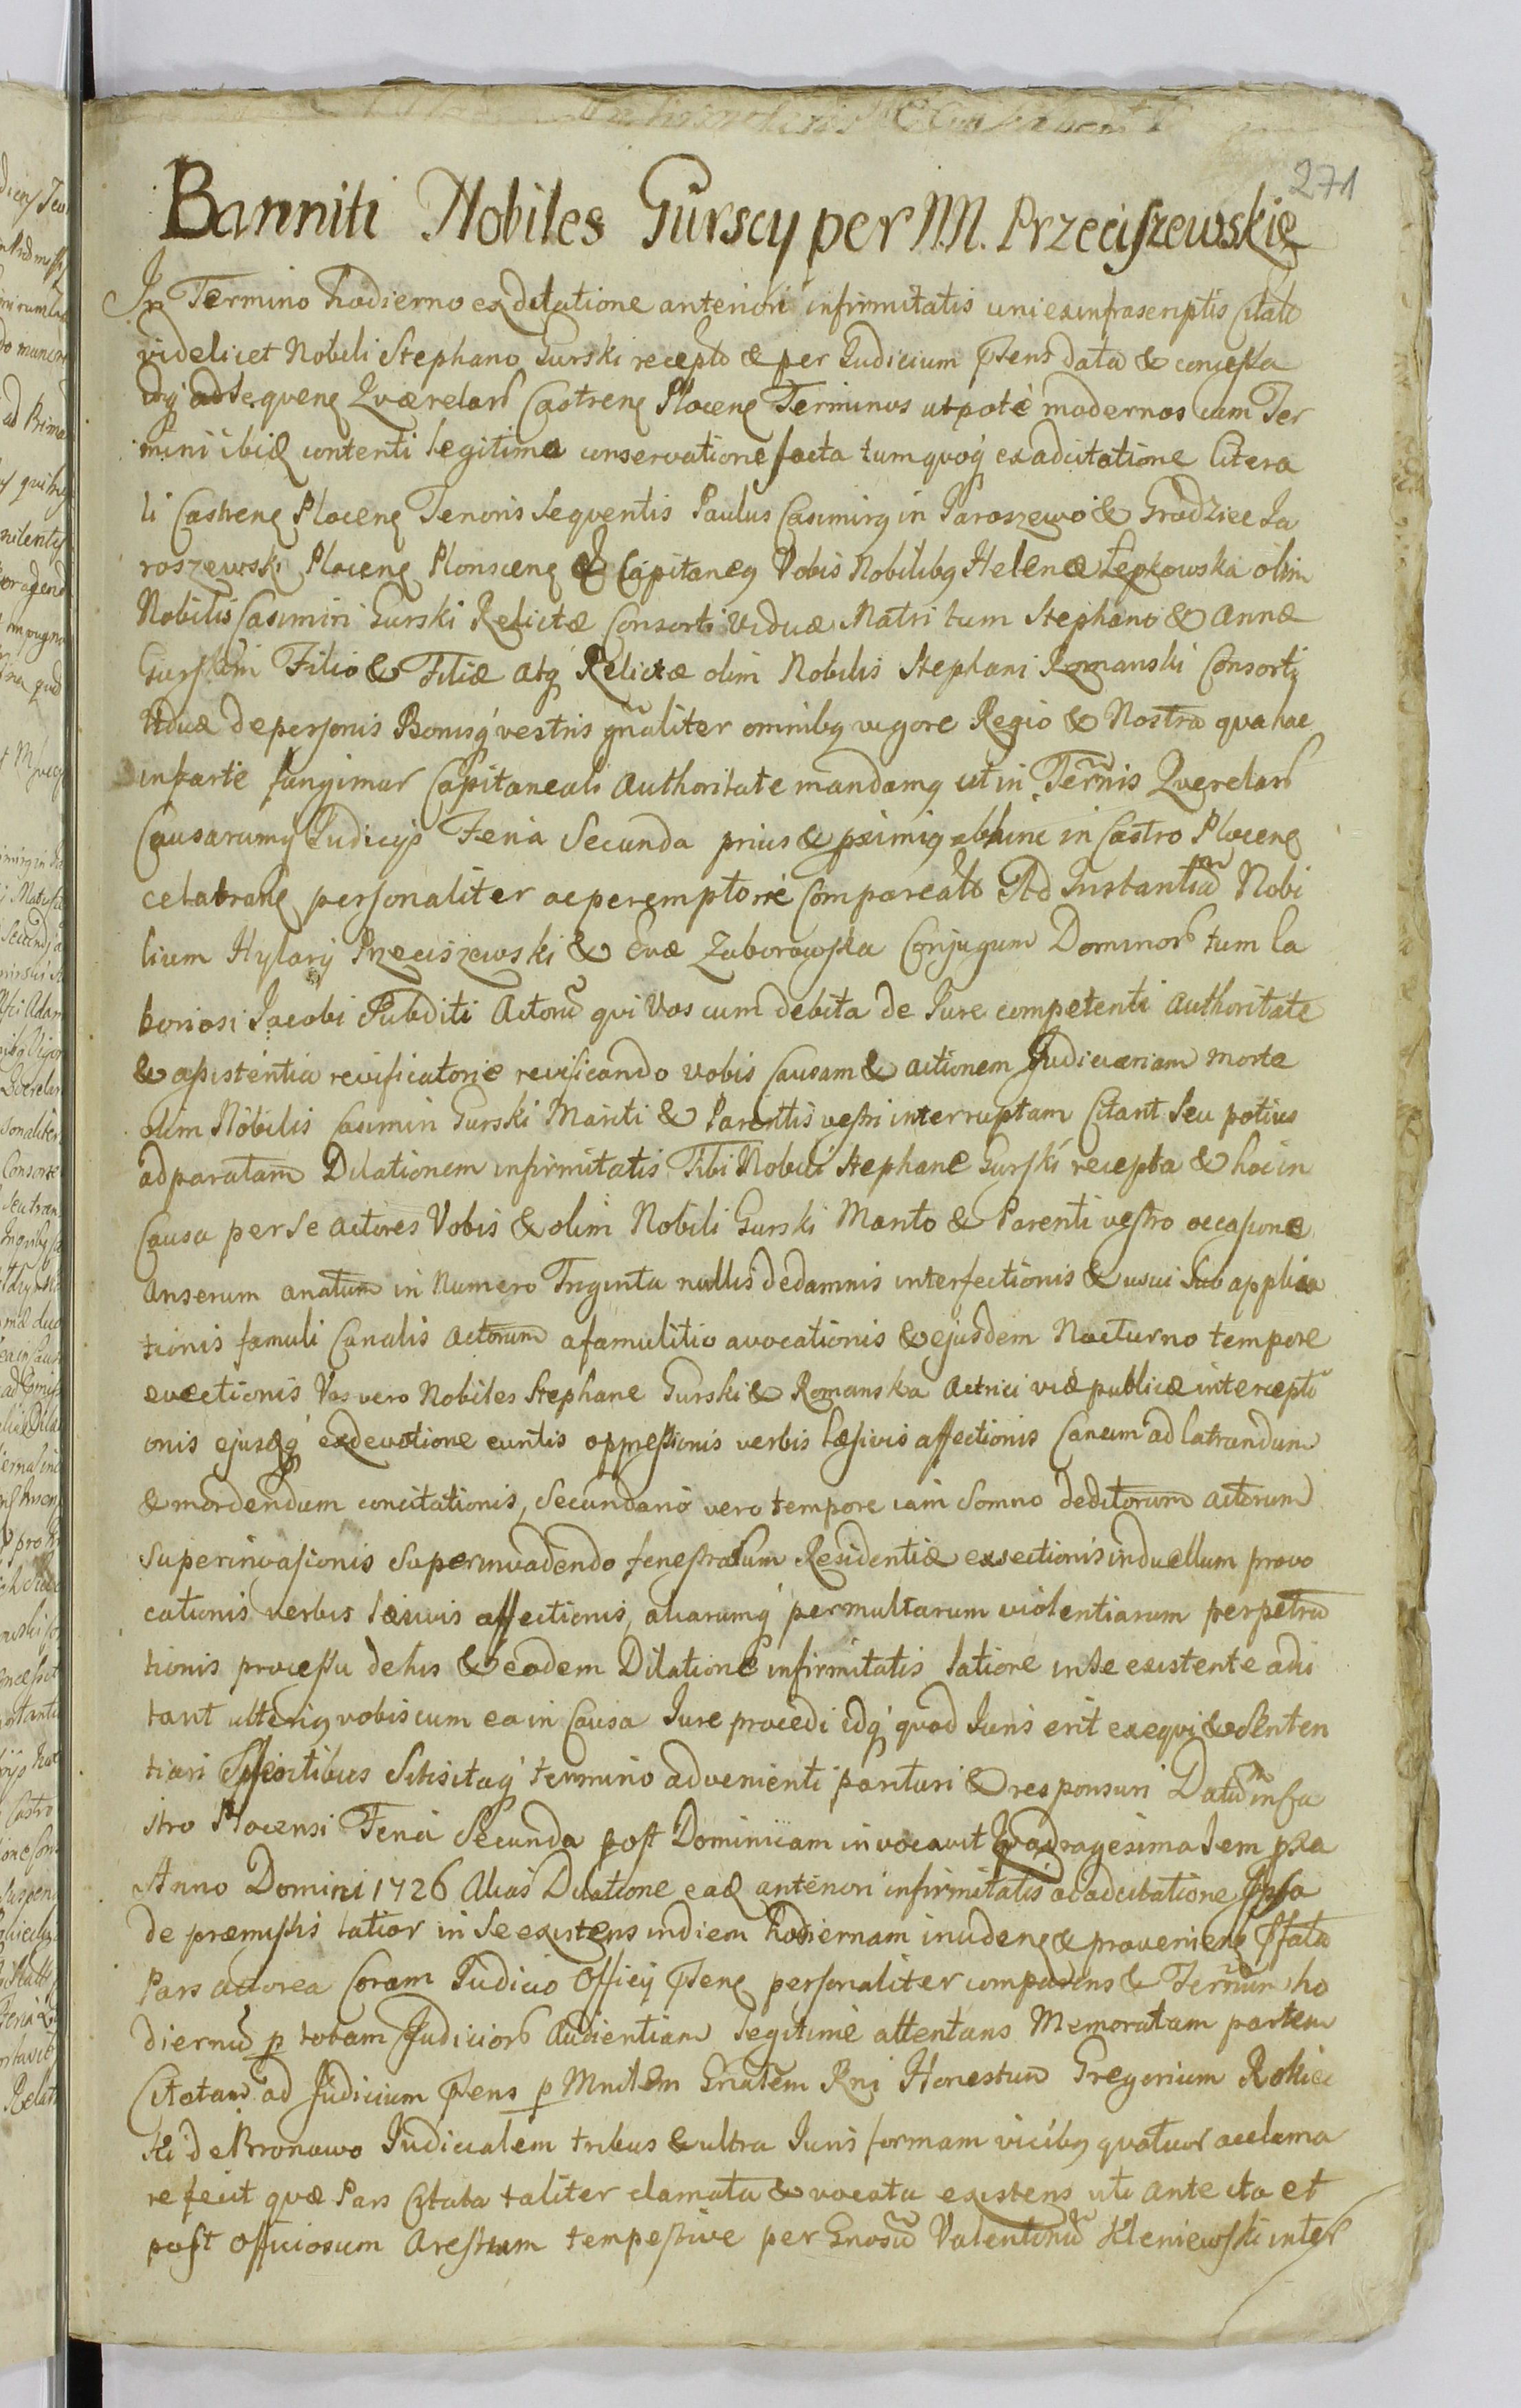 271
Banniti Nobiles Gurscy per N.N. Przeciszewskie
In Termino hodierno ex dilatione anteriori infirmitatis uni ex infrascriptis Citato
videlicet Nobili Stephano Gurski recepto & per Judicium Psens data & concessa
idq ad sequenς Querelarũ Castrenς Plocenς Terminos utpote modernos cum Ter
mini ibidẽ contenti legitima conservatione facta tum quoq ex adcitatione litera
li Castrenς Plocenς Tenoris sequentis Paulus Casimirς in Jaroszewo & Grodziec Ja
roszewski Plocenς Plonscenς & Capitaneς Vobis Nobilibς Helenæ Łepkowska olim
Nobilis Casimiri Gurski Relictæ Consorti viduæ Matri tum Stephano & Annæ
Gurskim Filio & Filiæ atq Relictæ olim Nobilis Stephani Romanski Consorti
viduæ de personis Bonisq vestris gñaliter omnibς vigore Regio & Nostra qua hac
in parte fungimur Capitaneali Authoritate mandamς ut in Terñis Querelarũ
Causarumq Judicijs Feria Secunda prius & pximiς abhinc in Castro Plocenς
celebranς personaliter ac peremptorie Compareatis Ad Instantiam Nobi
lium Hylarij Przeciszewski & Evæ Zaborowska Conjugum Dominorũ tum la
boriosi Jacobi Subditi Actorũ qui Vos cum debita de Jure competenti authoritate
& assistentia revificatorie revificando vobis Causam & actionem Judiciariam morte
olim Nobilis Casimiri Gurski Mariti & Parentis vestri interruptam Citant seu potius
ad paratam Dilationem infirmitatis Tibi Nobili Stephane Gurski recepta & hoc in
Causa per se actores Vobis & olim Nobili Gurski Marito & Parenti vestro occasione
Anserum anatum in Numero Triginta nullis de damnis interfectionis & usui suo applica
tionis famuli Canalis actorum a famulitio avocationis & ejusdem Nocturno tempore
evectionis Vos vero Nobiles Stephane Gurski & Romanska Actrici viæ publicæ intercepti
onis ejusdẽq ex devotione euntis oppressionis verbis læsivis affectionis Canum ad latrandum
& mordendum concitationis, Secundario vero tempore iam Somno deditorum actorum
Superinvasionis Superinvadendo fenestrarum Residentiæ exsectionis in duellum provo
cationis verbis læsivis affectionis, aliarumq permultarum violentiarum perpetra
tionis processu de his & eadem Dilatione infirmitatis latiore in se existente adci
tant ulteriς vobiscum ea in Causa Jure procedi idq quod Juris erit exequi & senten
tiari Sitisitaq termino advenienti parituri & responsuri Datum in Ca
stro Plocensi Feria Secunda post Dominicam invocavit Quadragesimalem pxa
Anno Domini 1726 Alias Dilatione eadẽ anteriori infirmitatis ac adcitatione Ipsa
de præmissis latior in se existens in diem hodiernam incidenς & provenienς Pfata
Pars actorea Coram Judicio Officij Psenς personaliter comparens & Terñum ho
diernũ p totam Judiciorũ Audientiam legitime attentans Memoratam partem
Citatam ad Judicium Psens p Mnilem Gñalem Rni Honestum Gregorium Rokic
ki de Bronowo Judicialem tribus & ultra Juris formam vicibς quatuor acclama
re fecit quæ Pars Citata taliter clamata & vocata existens uti ante ita et
post Officiosum Arestum tempestive per Gnosũ Valentinũ Kleniewski inter